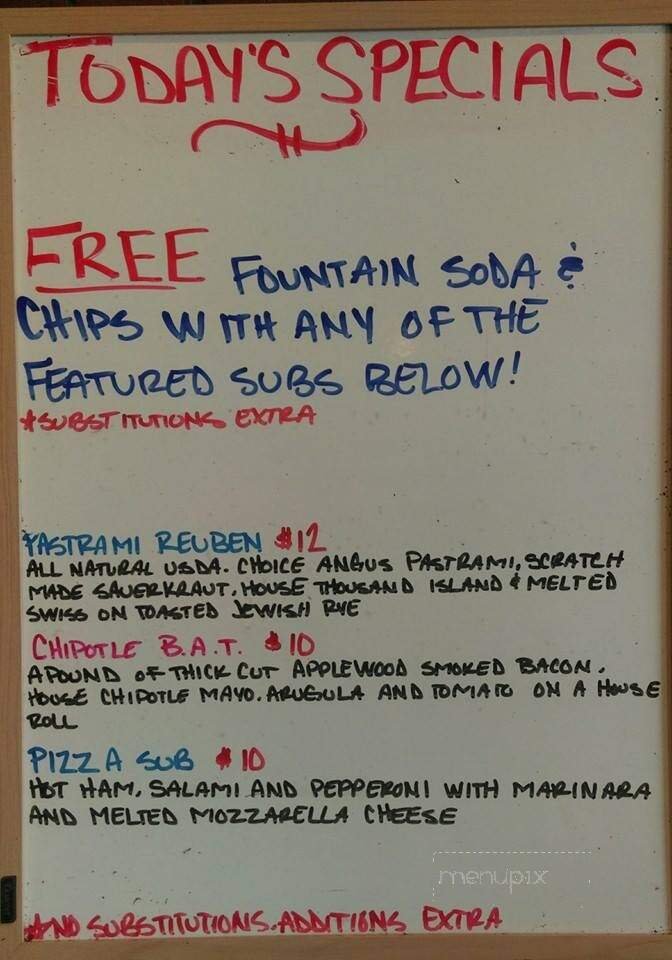 TODAY'S SPECIALS
FREE FOUNTAIN SODA &
CHIPS WITH ANY OF THE
FEATURED SUBS BELOW!
*SUBSTITUTIONS EXTRA
PASTRAMI REUBEN $12
ALL NATURAL USDA. CHOICE ANGUS PASTRAMI, SCRATCH
MADE SAUERKRAUT, HOUSE THOUSAND ISLAND & MELTED
SWISS ON TOASTED JEWISH RYE
CHIPOTLE B.A.T. $10
A POUND OF THICK CUT APPLEWOOD SMOKED BACON,
HOUSE CHIPOTLE MAYO. ARUGULA AND TOMATO ON A HOUSE
ROLL
PIZZA SUB $10
HOT HAM, SALAMI AND PEPPERONI WITH MARINARA
AND MELTED MOZZARELLA CHEESE
menupix
*NO SUBSTITUTIONS. ADDITIONS EXTRA